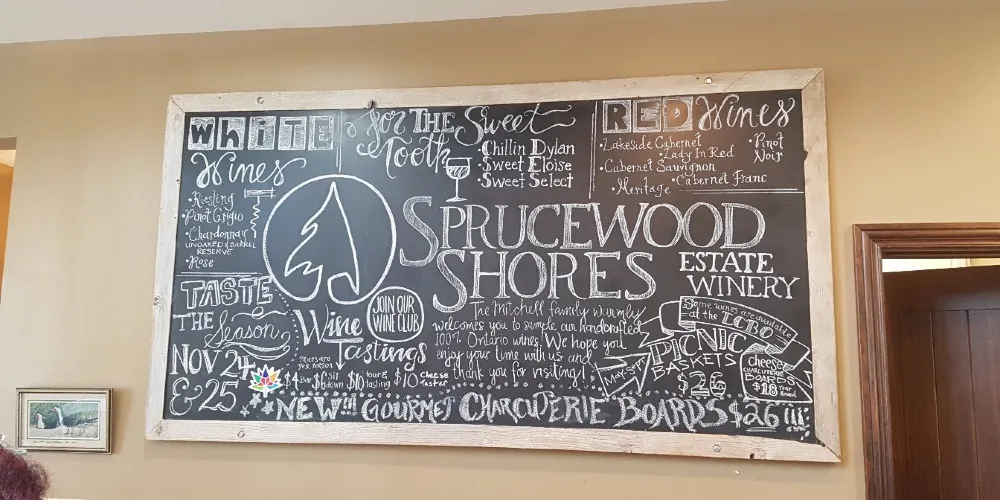 WhITE
Wines
•Riesling
•Pinot Grigio
•Chardonnay
UNOAKED & BARREL
RESERVE
•Rose
for THE Sweet
Tooth
•Chillin Dylan
•Sweet Eloise
•Sweet Select
RED Wines
•Lakeside Cabernet
•Lady In Red
•Cabernet Sauvignon
•Cabernet Franc
•Meritage
•Pinot
Noir
SPRUCEWOOD
SHORES
ESTATE
WINERY
TASTE
THE Season
NOV 24
& 25
Wine
Tastings
JOIN OUR
WINE CLUB
PRICES ARE
PER PERSON
$4 Bar $6 sit down $10 tour & tasting $10 Cheese taster
The Mitchell family warmly
welcomes you to sample our handcrafted
100% Ontario wines. We hope you
enjoy your time with us and
thank you for visiting!
Some wines are available
at the LCBO
PICNIC
BASKETS
$26
cheese
CHARCUTERIE
BOARDS
$18
NEW!!! GOURMET CHARCUTERIE BOARDS $26!!!